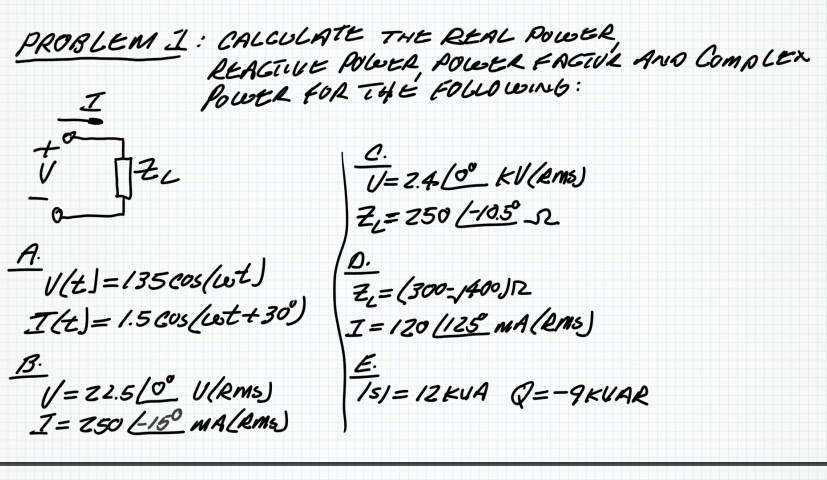 PROBLEM 1: CALCULATE THE REAL POWER,
REACTIVE POWER, POWER FACTOR AND COMPLEX
POWER FOR THE FOLLOWING:
I
+
V
Z_L
−
A.
V(t) = 135 cos(ωt)
I(t) = 1.5 cos(ωt + 30°)
B.
V = 22.5 ∠0° V(RMS)
I = 250 ∠-15° mA(RMS)
C.
V = 2.4 ∠0° KV(RMS)
Z_L = 250 ∠-10.5° Ω
D.
Z_L = (300 - j400) Ω
I = 120 ∠125° mA(RMS)
E.
|S| = 12 KVA Q = -9 KVAR